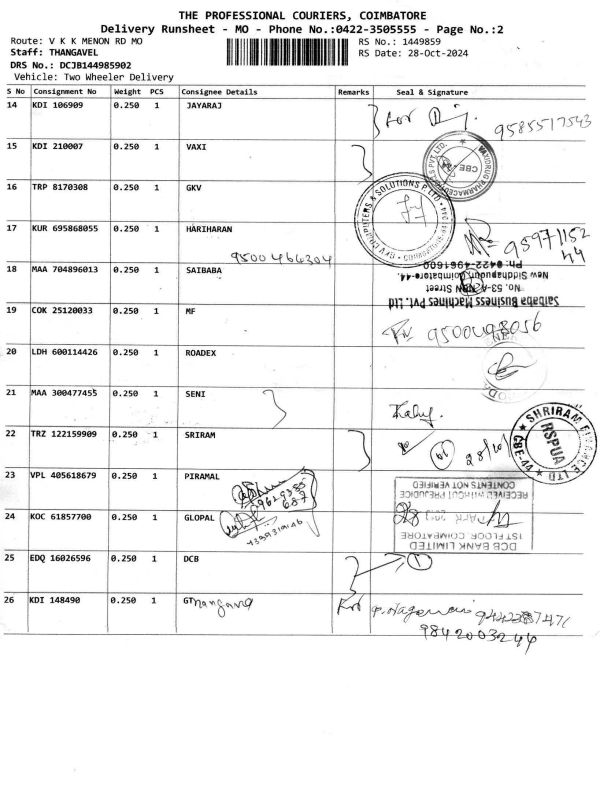 THE PROFESSIONAL COURIERS, COIMBATORE
Delivery Runsheet - MO - Phone No.:0422-3505555 - Page No.:2
Route: V K K MENON RD MO RS No.: 1449859
Staff: THANGAVEL RS Date: 28-Oct-2024
DRS No.: DCJB144985902
Vehicle: Two Wheeler Delivery
S No Consignment No Weight PCS Consignee Details Remarks Seal & Signature
14 KDI 106909 0.250 1 JAYARAJ
9585517543
15 KDI 210007 0.250 1 VAXI
CBE
16 TRP 8170308 0.250 1 GKV
GKV COMPUTERS & SOLUTIONS P LTD
17 KUR 695868055 0.250 1 HARIHARAN
9500466304
95971152
44
18 MAA 704896013 0.250 1 SAIBABA
Saibaba Business Machines Pvt. Ltd
No. 53-A, Street
New Siddhapudur, Coimbatore-44.
Ph: 0422-4961600
19 COK 25120033 0.250 1 MF
9500498056
20 LDH 600114426 0.250 1 ROADEX
21 MAA 300477455 0.250 1 SENI
22 TRZ 122159909 0.250 1 SRIRAM
28/10
SHRIRAM FINANCE LTD
RSPUA
CBE-44
23 VPL 405618679 0.250 1 PIRAMAL
24 KOC 61857700 0.250 1 GLOPAL
DCB BANK LIMITED
1ST FLOOR COIMBATORE
RECEIVED WITHOUT PREJUDICE
CONTENTS NOT VERIFIED
25 EDQ 16026596 0.250 1 DCB
26 KDI 148490 0.250 1 GT
9842003244